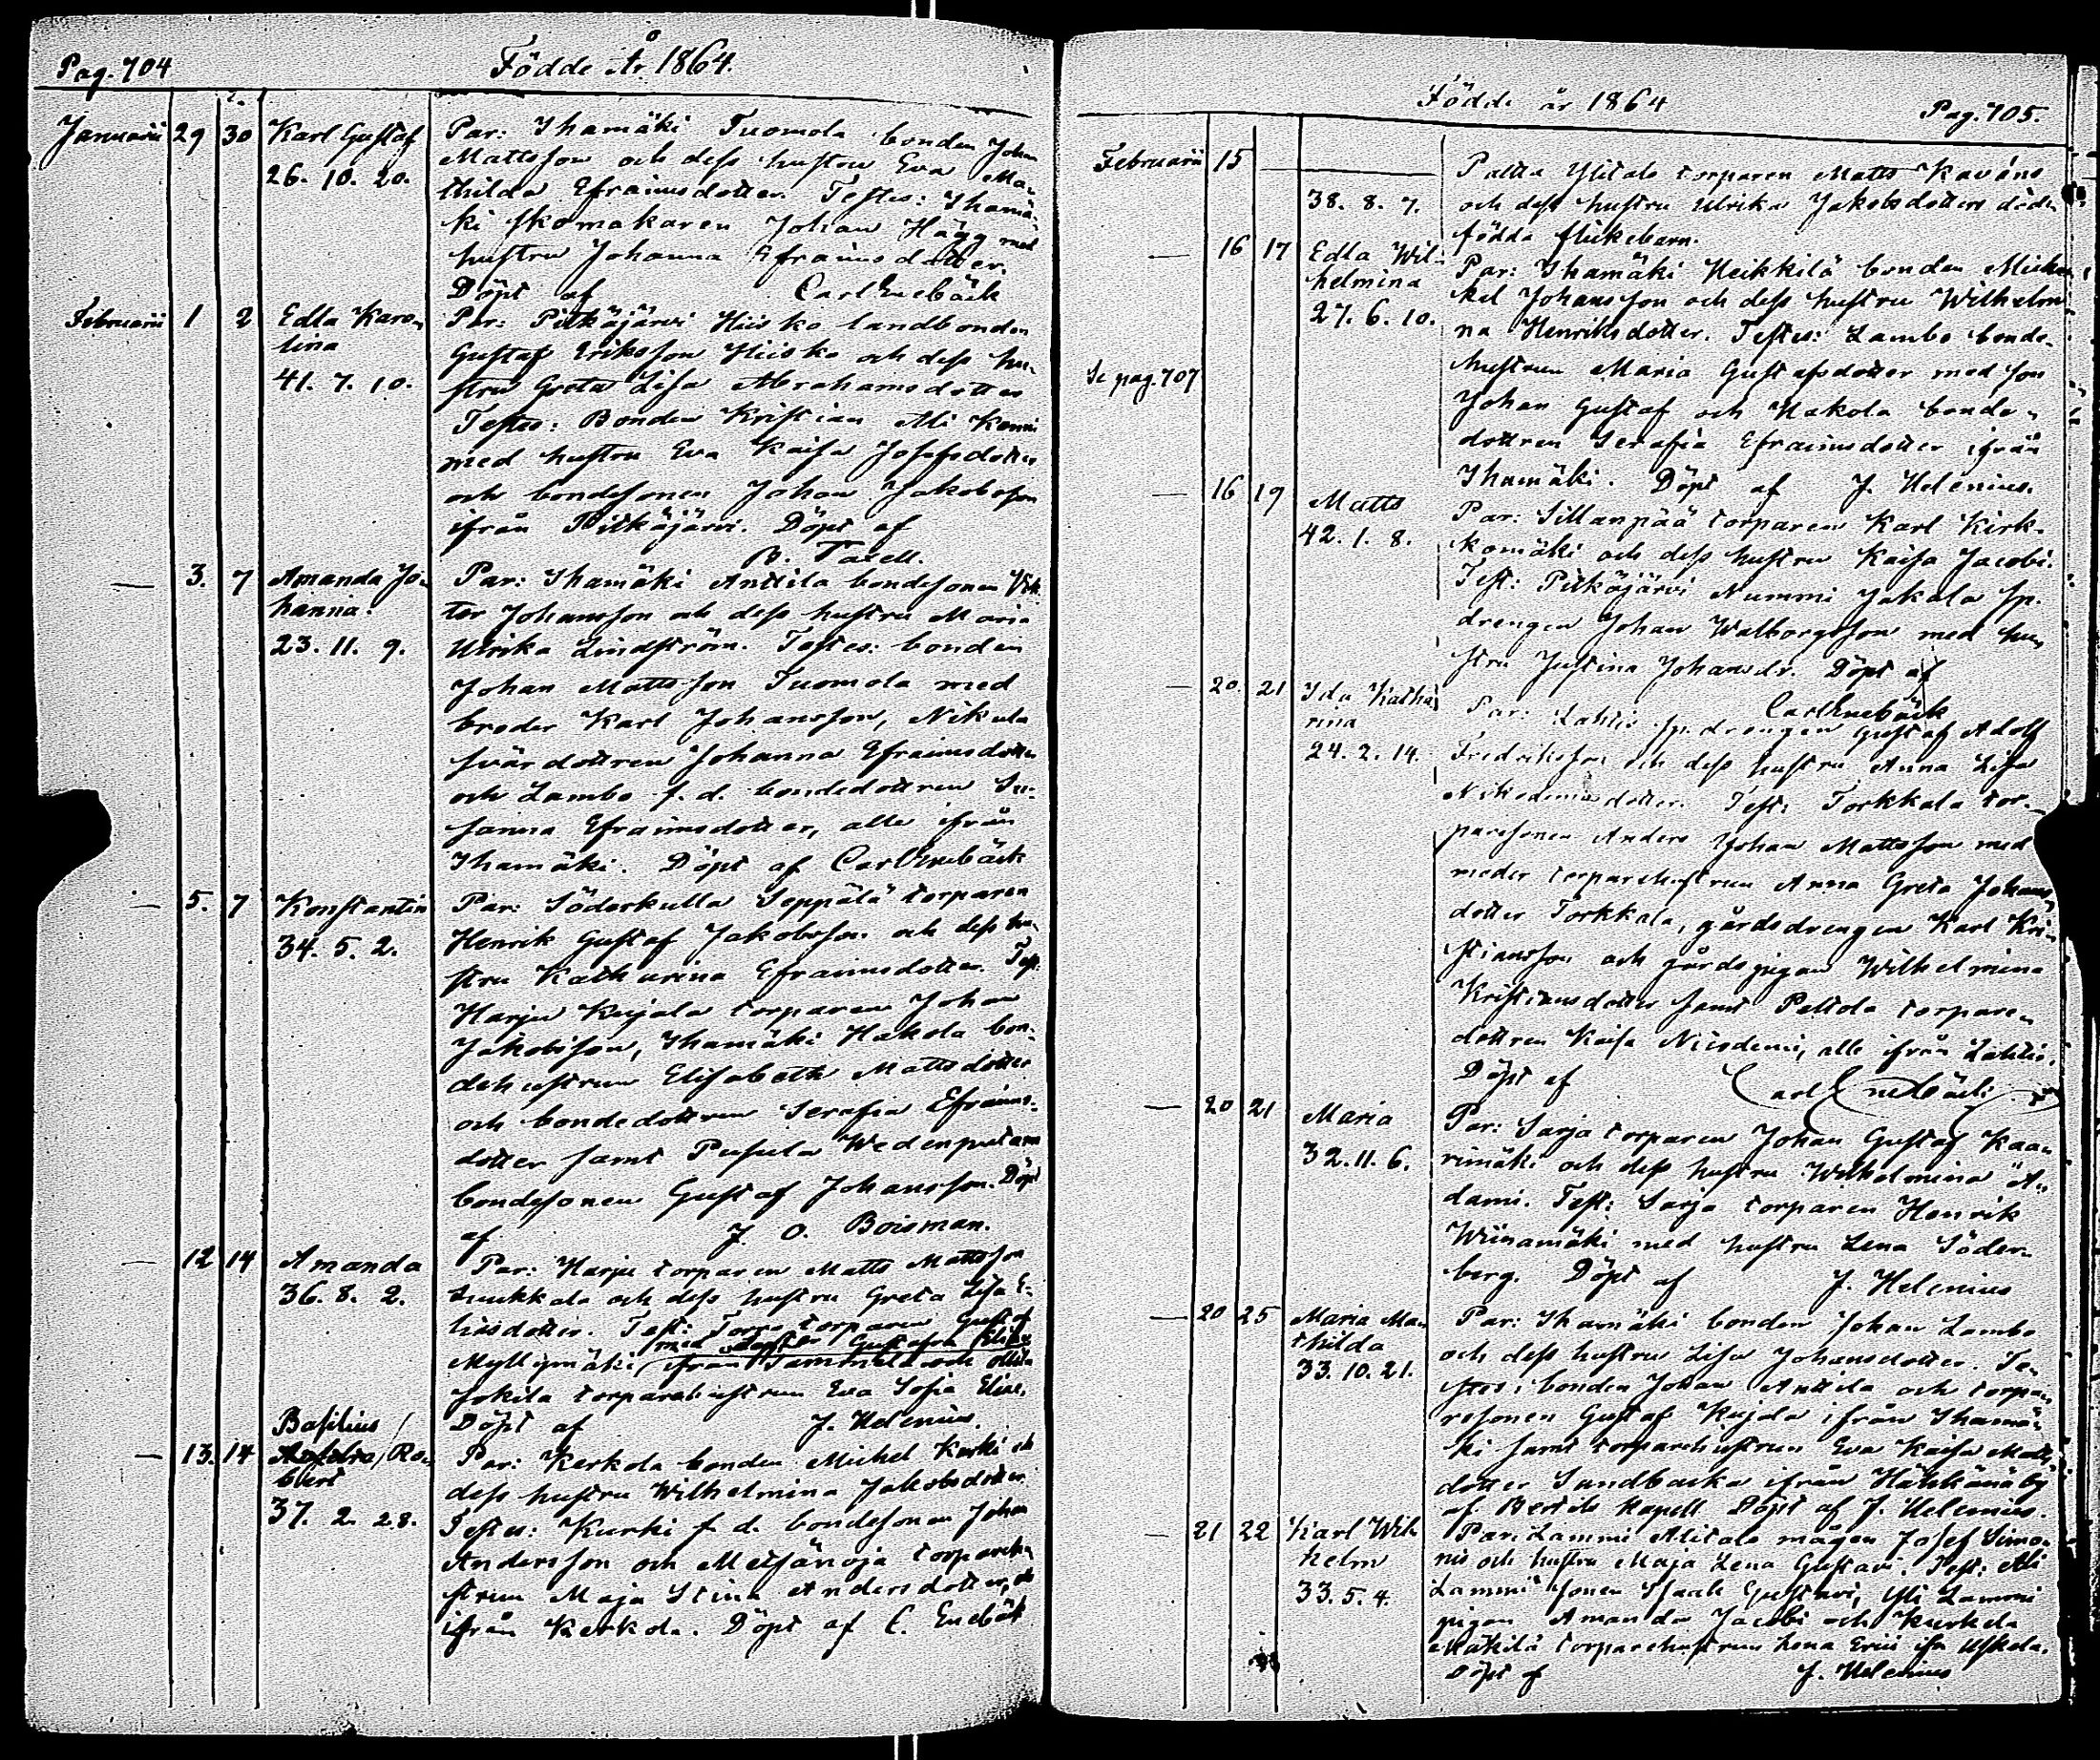 Pag. 704
Födde År 1864.
Januarii 29 30 Karl Gustaf
26. 10. 20.
Par: Ihamäki Tuomola bonden Johan
Mattsson och dess hustru Eva Ma-
thilda Efraimsdotter. Testes: Ihamä-
ki skomakaren Johan Hägg med
hustru Johanna Efraimsdotter.
Döpt af Carl Enebäck
Februarii 1 2 Edla Karo-
lina
41. 7. 10.
Par: Pitkäjärvi Hiisko landbonden
Gustaf Eriksson Hiisko och dess hu-
stru Greta Lisa Abrahamsdotter
Testes: Bonden Kristian Ali
med hustru Eva Kaisa Josefsdotter
och bondesonen Johan Jakobsson
ifrån Pitkäjärvi. Döpt af
— 3. 7 Amanda Jo-
hanna.
23. 11. 9.
Par: Ihamäki Anttila bondesonen Vik-
tor Johansson och dess hustru Maria
Ulrika Lindström. Testes: bonden
Johan Mattsson Tuomola med
broder Karl Johansson, Nikula
svärdottren Johanna Efraimsdotter
och Lambo f. d. bondedottren Su-
sanna Efraimsdotter, alla ifrån
Ihamäki. Döpt af Carl Enebäck
— 5. 7 Konstantin
34. 5. 2.
Par: Söderkulla Seppälä torparen
Henrik Gustaf Jakobsson och dess hu-
stru Katharina Efraimsdotter. Test:
Harju Kujala torparen Johan
Jakobsson, Ihamäki Hakola bon-
dehustrun Elisabeth Mattsdotter
och bondedottren Serafia Efraims-
dotter samt Pusula
bondesonen Gustaf Johansson. Döpt
af J. O. Boisman.
— 12 14 Amanda
36. 8. 2.
Par: Harju torparen Matts Mattsson
och dess hustru Greta Lisa E-
liasdotter. Test: torparen Gustaf
med dotter
Myllymäki ifrån och
Jokila torparehustrun Eva Sofia
Döpt af J. Helenius.
— 13. 14 Basilius
Ro-
bert
37. 2. 28.
Par: Kerkola bonden Michel Kurki och
dess hustru Wilhelmina Jakobsdotter.
Testes: Kurki f. d. bondesonen Johan
Andersson och Metsänoja torparehu-
strun Maja Stina Andersdotter,
ifrån Kerkola. Döpt af C. Enebäck
Födde år 1864
Pag. 705.
Februarii 15
38. 8. 7.
Paltta Ylitalo torparen Matts
och dess hustru Ulrika Jakobsdotters död-
födda flickebarn.
— 16 17 Edla Wil-
helmina
27. 6. 10.
Se pag. 707
Par: Ihamäki Heikkilä bonden Mich-
kel Johansson och dess hustru Wilhelmi-
na Henriksdotter. Testes: Lambo bonde-
hustrun Maria Gustafsdotter med son
Johan Gustaf och Hakola bonde-
dottren Serafia Efraimsdotter ifrån
Ihamäki. Döpt af J. Helenius.
— 16 19 Matts
42. 1. 8.
Par: Sillanpää torparen Karl Kirk-
komäki och dess hustru Kaisa Jacobi.
Test: Pitkäjärvi Nummi Jakola sp.
drengen Johan Walborgsson med hu-
stru Justina Johansdr. Döpt af
Carl Enebäck
— 20. 21 Ida Katha-
rina
24. 2. 14.
Par: Lahtis sp. drengen Gustaf Adolf
Fredriksson och dess hustru Anna Lisa
Nikodemusdotter. Test: Torkkala tor-
paresonen Anders Johan Mattsson med
moder torparehustrun Anna Greta Johans-
dotter Torkkala, gårdsdrengen Karl Kri-
stiansson och gårdspigan Wilhelmina
Kristiansdotter samt Peltola torpare-
dottren Kaisa Nicodemi, alla ifrån Lahtis.
Döpt af Carl Enebäck
— 20 21 Maria
32. 11. 6.
Par: Sarja torparen Johan Gustaf Kaa-
rimäki och dess hustru Wilhelmina A-
dami. Test: Sarja torparen Henrik
Wiinamäki med hustru Lena Söder-
berg. Döpt af J. Helenius
— 20 25 Maria Ma-
thilda
33. 10. 21.
Par: Ihamäki bonden Johan Lambo
och dess hustru Lisa Johansdotter. Te-
stes: bonden Johan Anttila och torpa-
resonen Gustaf Kujala ifrån Ihamä-
ki samt torparehustrun Eva Kaisa Matts-
dotter Sundbacka ifrån Häkkänäby
af kapell. Döpt af J. Helenius.
— 21 22 Karl Wil-
helm
33. 5. 4.
Par: Lammi Alitalo mågen Josef Simo-
nis och hustru Maja Lena Gustavi. Test: Ali
Lammi sonen Isaak Gustavi, Yli Lammi
pigan Amanda Jacobi och Kurkela
Mäkilä torparehustrun Lena Erici ifr Uskela.
Döpt af J. Helenius